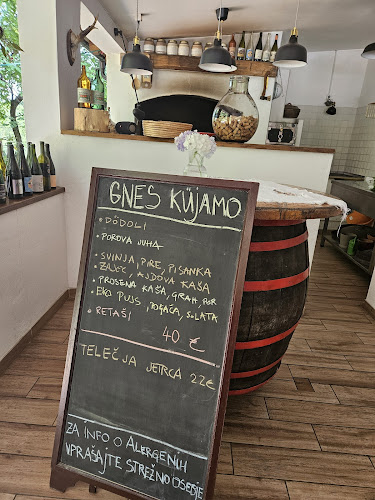 GNES KÜJAMO
• DÖDOLI
• POROVA JUHA
• SVINJA, PIRE, PISANKA
• ZAJEC, AJDOVA KAŠA
• PROSENA KAŠA, GRAH, POR
• EKO PUJS, POGAČA, SOLATA
• RETAŠI
40 €
TELEČJA JETRCA 22€
ZA INFO O ALERGENIH
VPRAŠAJTE STREŽNO OSEBJE